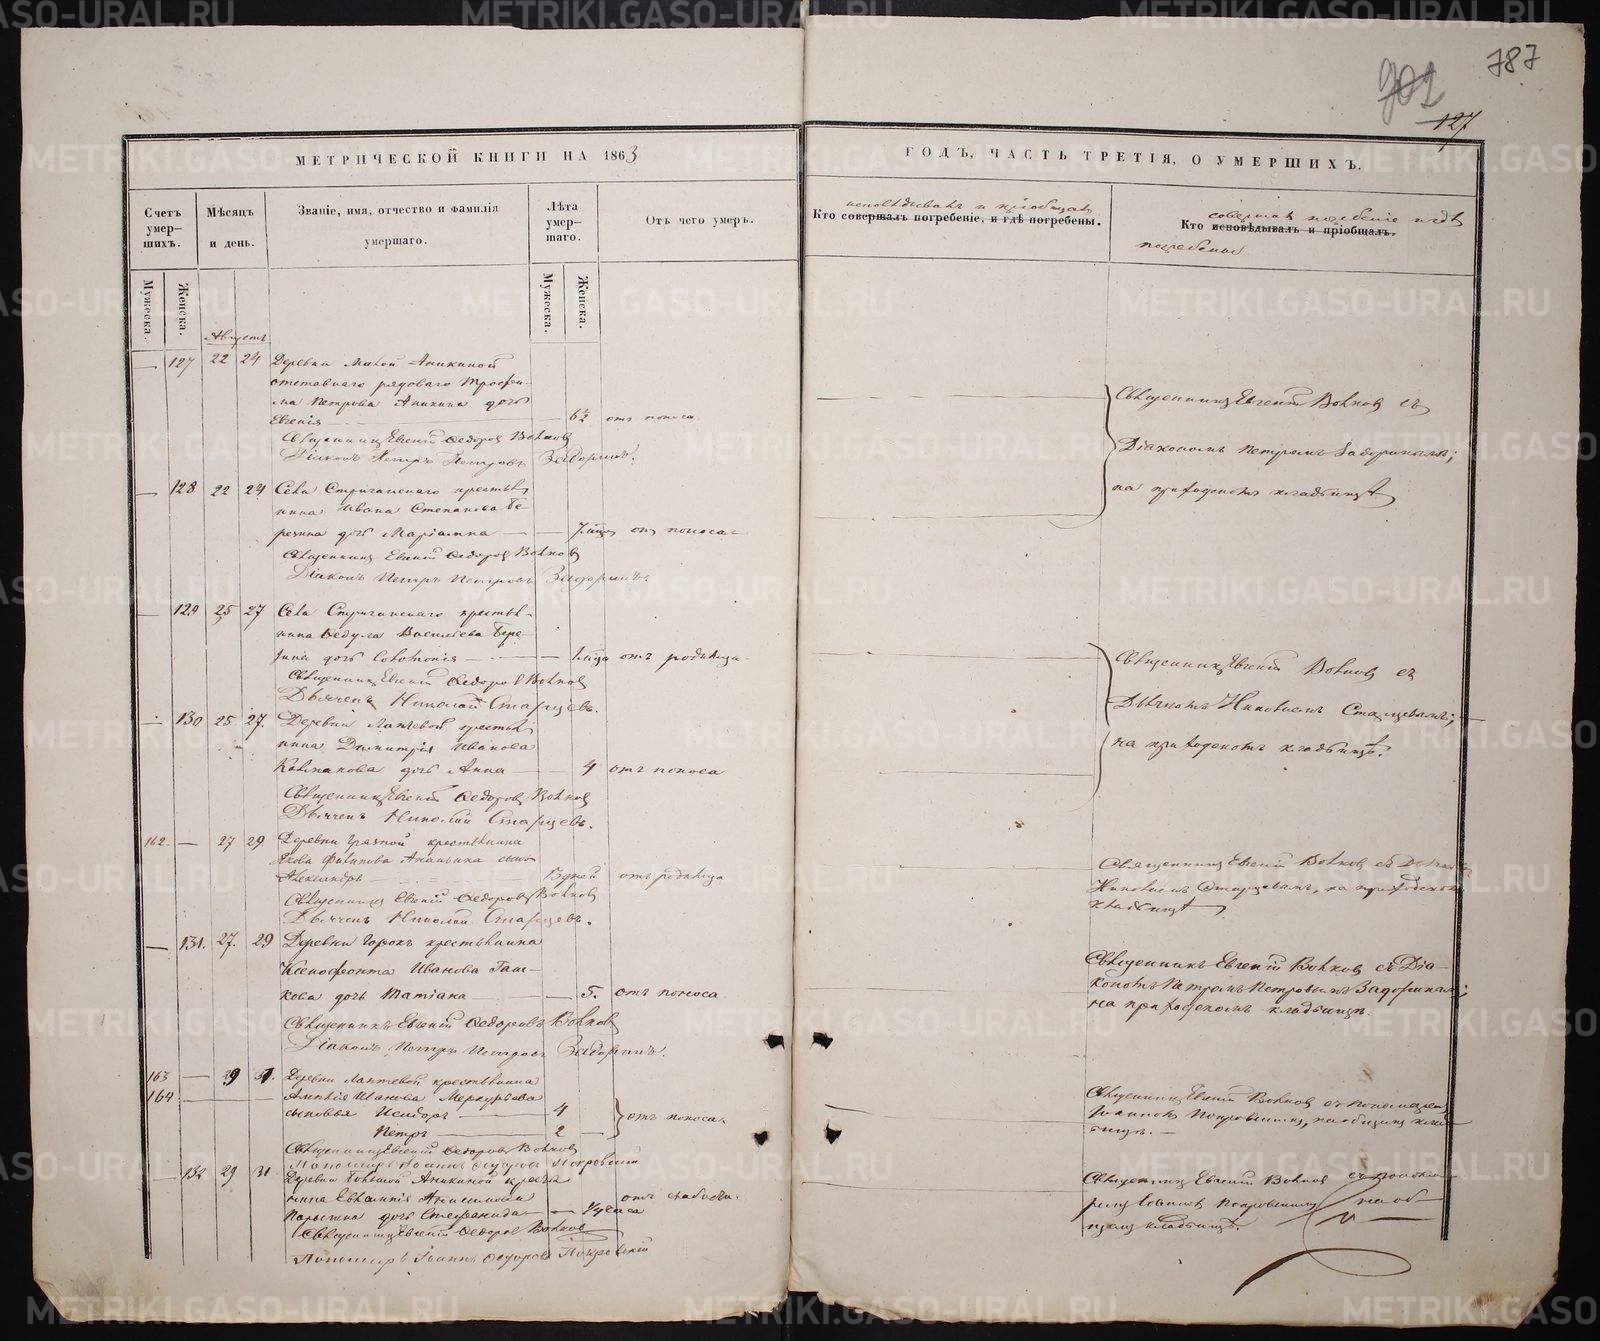 787
702
127
МЕТРИЧЕСКОЙ КНИГИ НА 1863 ГОДЪ, ЧАСТЬ ТРЕТІЯ, О УМЕРШИХЪ.
Счетъ умер-шихъ.
Мѣсяцъ и день.
Званіе, имя, отчество и фамилія умершаго.
Лѣта умер-шаго.
Отъ чего умеръ.
исповѣдывалъ и пріобщалъ
Кто совершалъ погребеніе, и гдѣ погребены.
совершалъ погребеніе и гдѣ
Кто исповѣдывалъ и пріобщалъ.
погребены
Мужеска.
Женска.
Мужеска.
Женска.
Августъ
— 127 22 24 Деревни Малой Аникиной
отставнаго рядоваго Трофи-
ма Петрова Аникина дочь
Евгенія — отъ поноса
Священникъ Евгеній Ѳедоровъ Волковъ
Діаконъ Петръ Петровъ Задоринъ.
Священникъ Евгеній Волковъ съ
Діакономъ Петромъ Задоринымъ;
на приходскомъ кладбищѣ
— 128 22 24 Села Стриганскаго крестья-
нина Ивана Степанова Бе-
резина дочь Маріамна — отъ поноса
Священникъ Евгеній Ѳедоровъ Волковъ
Діаконъ Петръ Петровъ Задоринъ.
— 129 25 27 Села Стриганскаго крестья-
нина Ѳедула Васильева Бере-
зина дочь Соломонія — отъ родимца
Священникъ Евгеній Ѳедоровъ Волковъ
Дьячекъ Николай Старцевъ.
Священникъ Евгеній Волковъ съ
Дьячкомъ Николаемъ Старцевымъ;
на приходскомъ кладбищѣ.
— 130 25 27. Деревни Лаптевой крестья-
нина Димитрія Иванова
Колмакова дочь Анна — 4 отъ поноса
Священникъ Евгеній Ѳедоровъ Волковъ
Дьячекъ Николай Старцевъ.
162. — 27 29. Деревни Грязной крестьянина
Якова Филипова Ананьина сынъ
Александръ — дней отъ родимца
Священникъ Евгеній Ѳедоровъ Волковъ
Дьячекъ Николай Старцевъ.
Священникъ Евгеній Волковъ съ Дьячкомъ
Николаемъ Старцевымъ, на приходскомъ
кладбищѣ
— 131. 27. 29 Деревни Горокъ крестьянина
Ксенофонта Иванова
дочь Татіана — 5. отъ поноса
Священникъ Евгеній Ѳедоровъ Волковъ
Діаконъ Петръ Петровъ Задоринъ.
Священникъ Евгеній Волковъ съ Діа-
кономъ Петромъ Петровымъ Задоринымъ;
на приходскомъ кладбищѣ.
163 — 29 31. Деревни Лаптевой крестьянина
164 Иванова Меркурьева
сыновья Исидоръ — 4
Петръ — 2 — отъ поноса.
Священникъ Евгеній Ѳедоровъ Волковъ
Пономарь Іоаннъ Ѳедоровъ Покровскій
Священникъ Евгеній Волковъ съ пономаремъ
Іоанномъ Покровскимъ, на общемъ клад-
бищѣ. —
— 132 29 31. Деревни Большой Аникиной крестья-
нина Евлампія
дочь Стефанида — часа отъ слабости.
Священникъ Евгеній Ѳедоровъ Волковъ
Пономарь Іоаннъ Ѳедоровъ Покровскій
Священникъ Евгеній Волковъ съ понома-
ремъ Іоанномъ Покровскимъ на об-
щемъ кладбищѣ.
METRIKI.GASO-URAL.RU